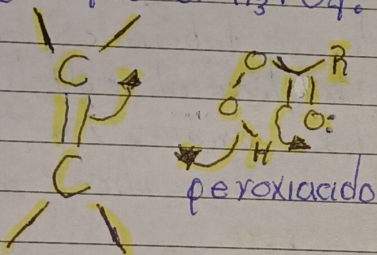 C O R
O O:
H
C
peroxiacido